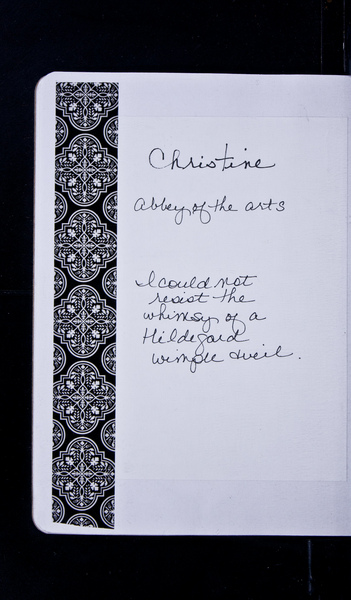 Christine
Abbey of the arts
I could not
resist the
whimsy of a
Hildegard
wimple & veil.